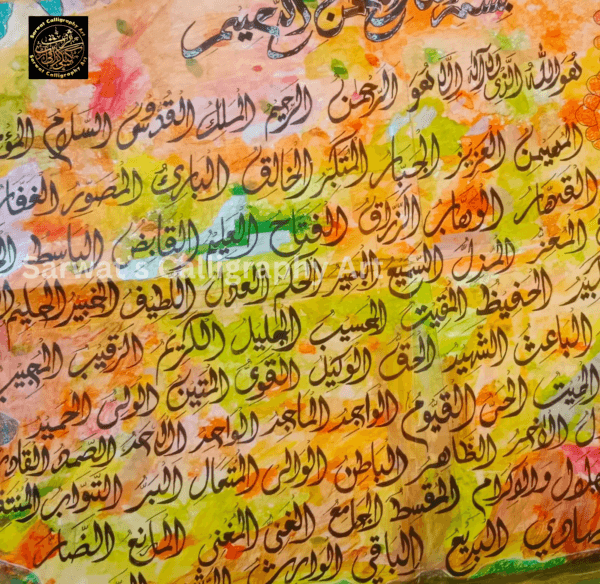 Sarwat Calligraphy Art
بسم الله الرحمن الرحيم
هو الله الذي لا اله الا هو الرحمن الرحيم الملك القدوس السلام
المهيمن العزيز الجبار المتكبر الخالق البارئ المصور الغفار
القهار الوهاب الرزاق الفتاح العليم القابض الباسط
Sarwat's Calligraphy Art
المعز المذل السميع البصير الحكم العدل اللطيف الخبير الحليم
الحفيظ المقيت الحسيب الجليل الكريم الرقيب المجيب
الباعث الشهيد الحق الوكيل القوي المتين الولي الحميد
المميت الحي القيوم الواجد الماجد الواحد الاحد الصمد القادر
الاخر الظاهر الباطن الوالي المتعال البر التواب
والاكرام المقسط الجامع الغني المغني المانع الضار
البديع الباقي الوارث